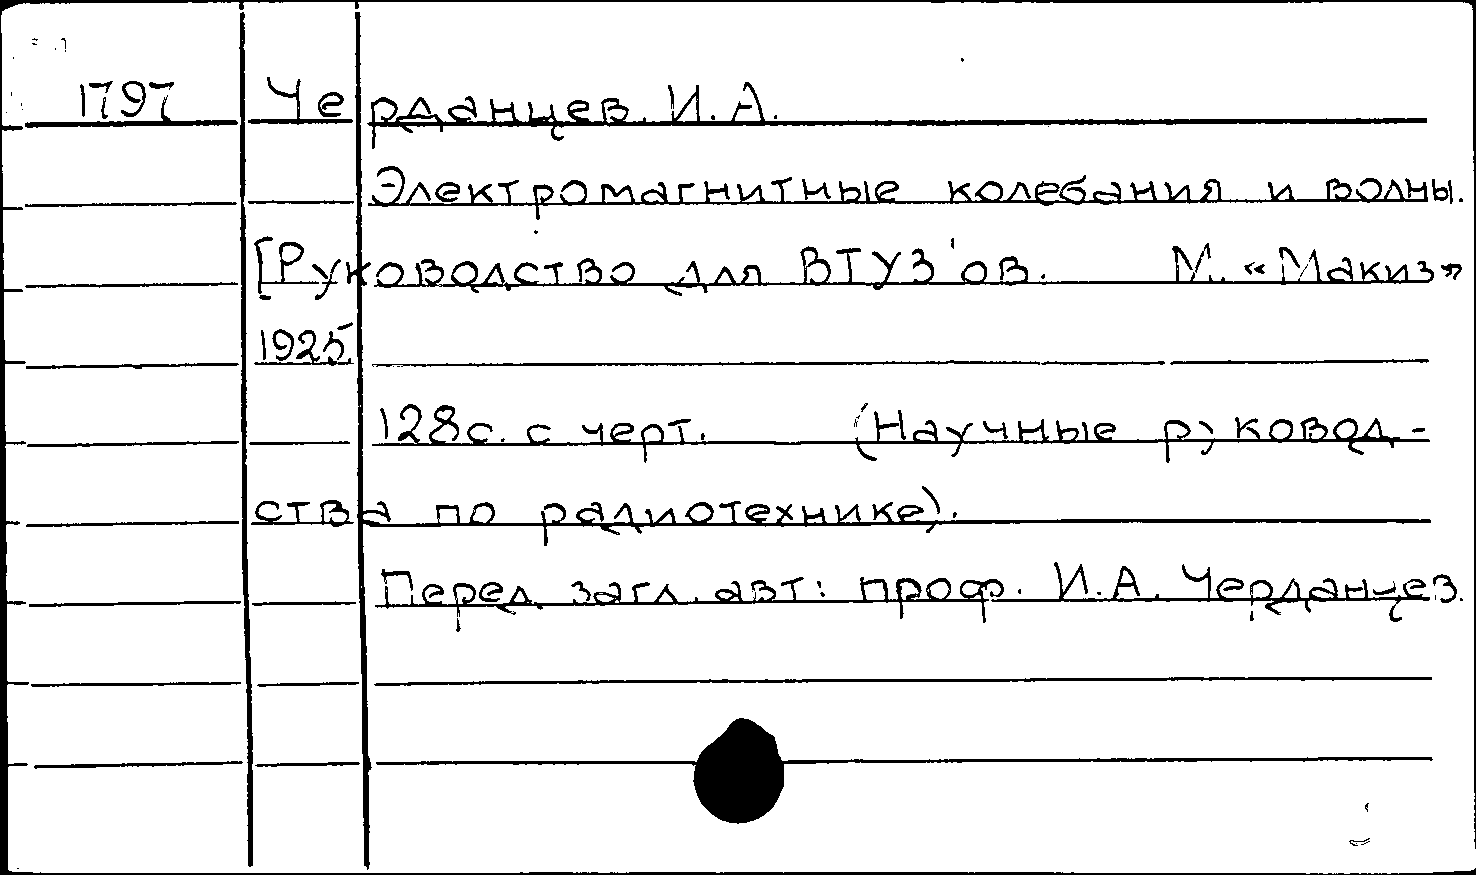 1797 Черданцев. И. А.
Электромагнитные колебания и волны.
[Руководство для ВТУЗ'ов. М. «Макиз»
1925.
128с. с черт. (Научные руковод-
ства по радиотехнике).
Перед загл. авт: проф. И. А. Черданцев.